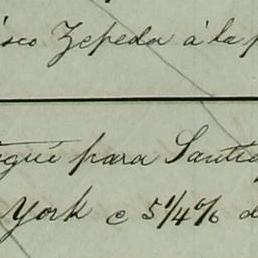 isco Zepeda á la p
egué para Santia
York c 5 1/4 % d